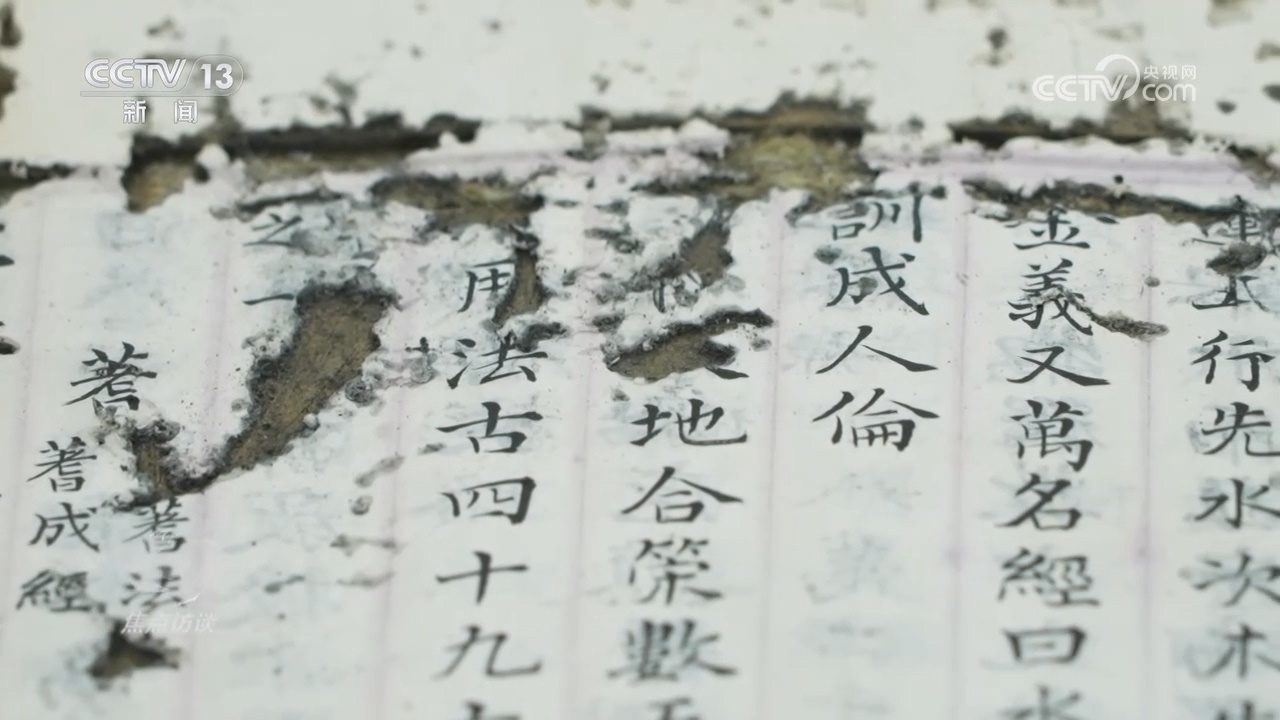 CCTV 13
新闻
央视网
CCTV.com
行先水次木
金義又萬名經曰水
訓成人倫
地合策數
用法古四十九
之一
蓍
蓍法
蓍成經
焦点访谈